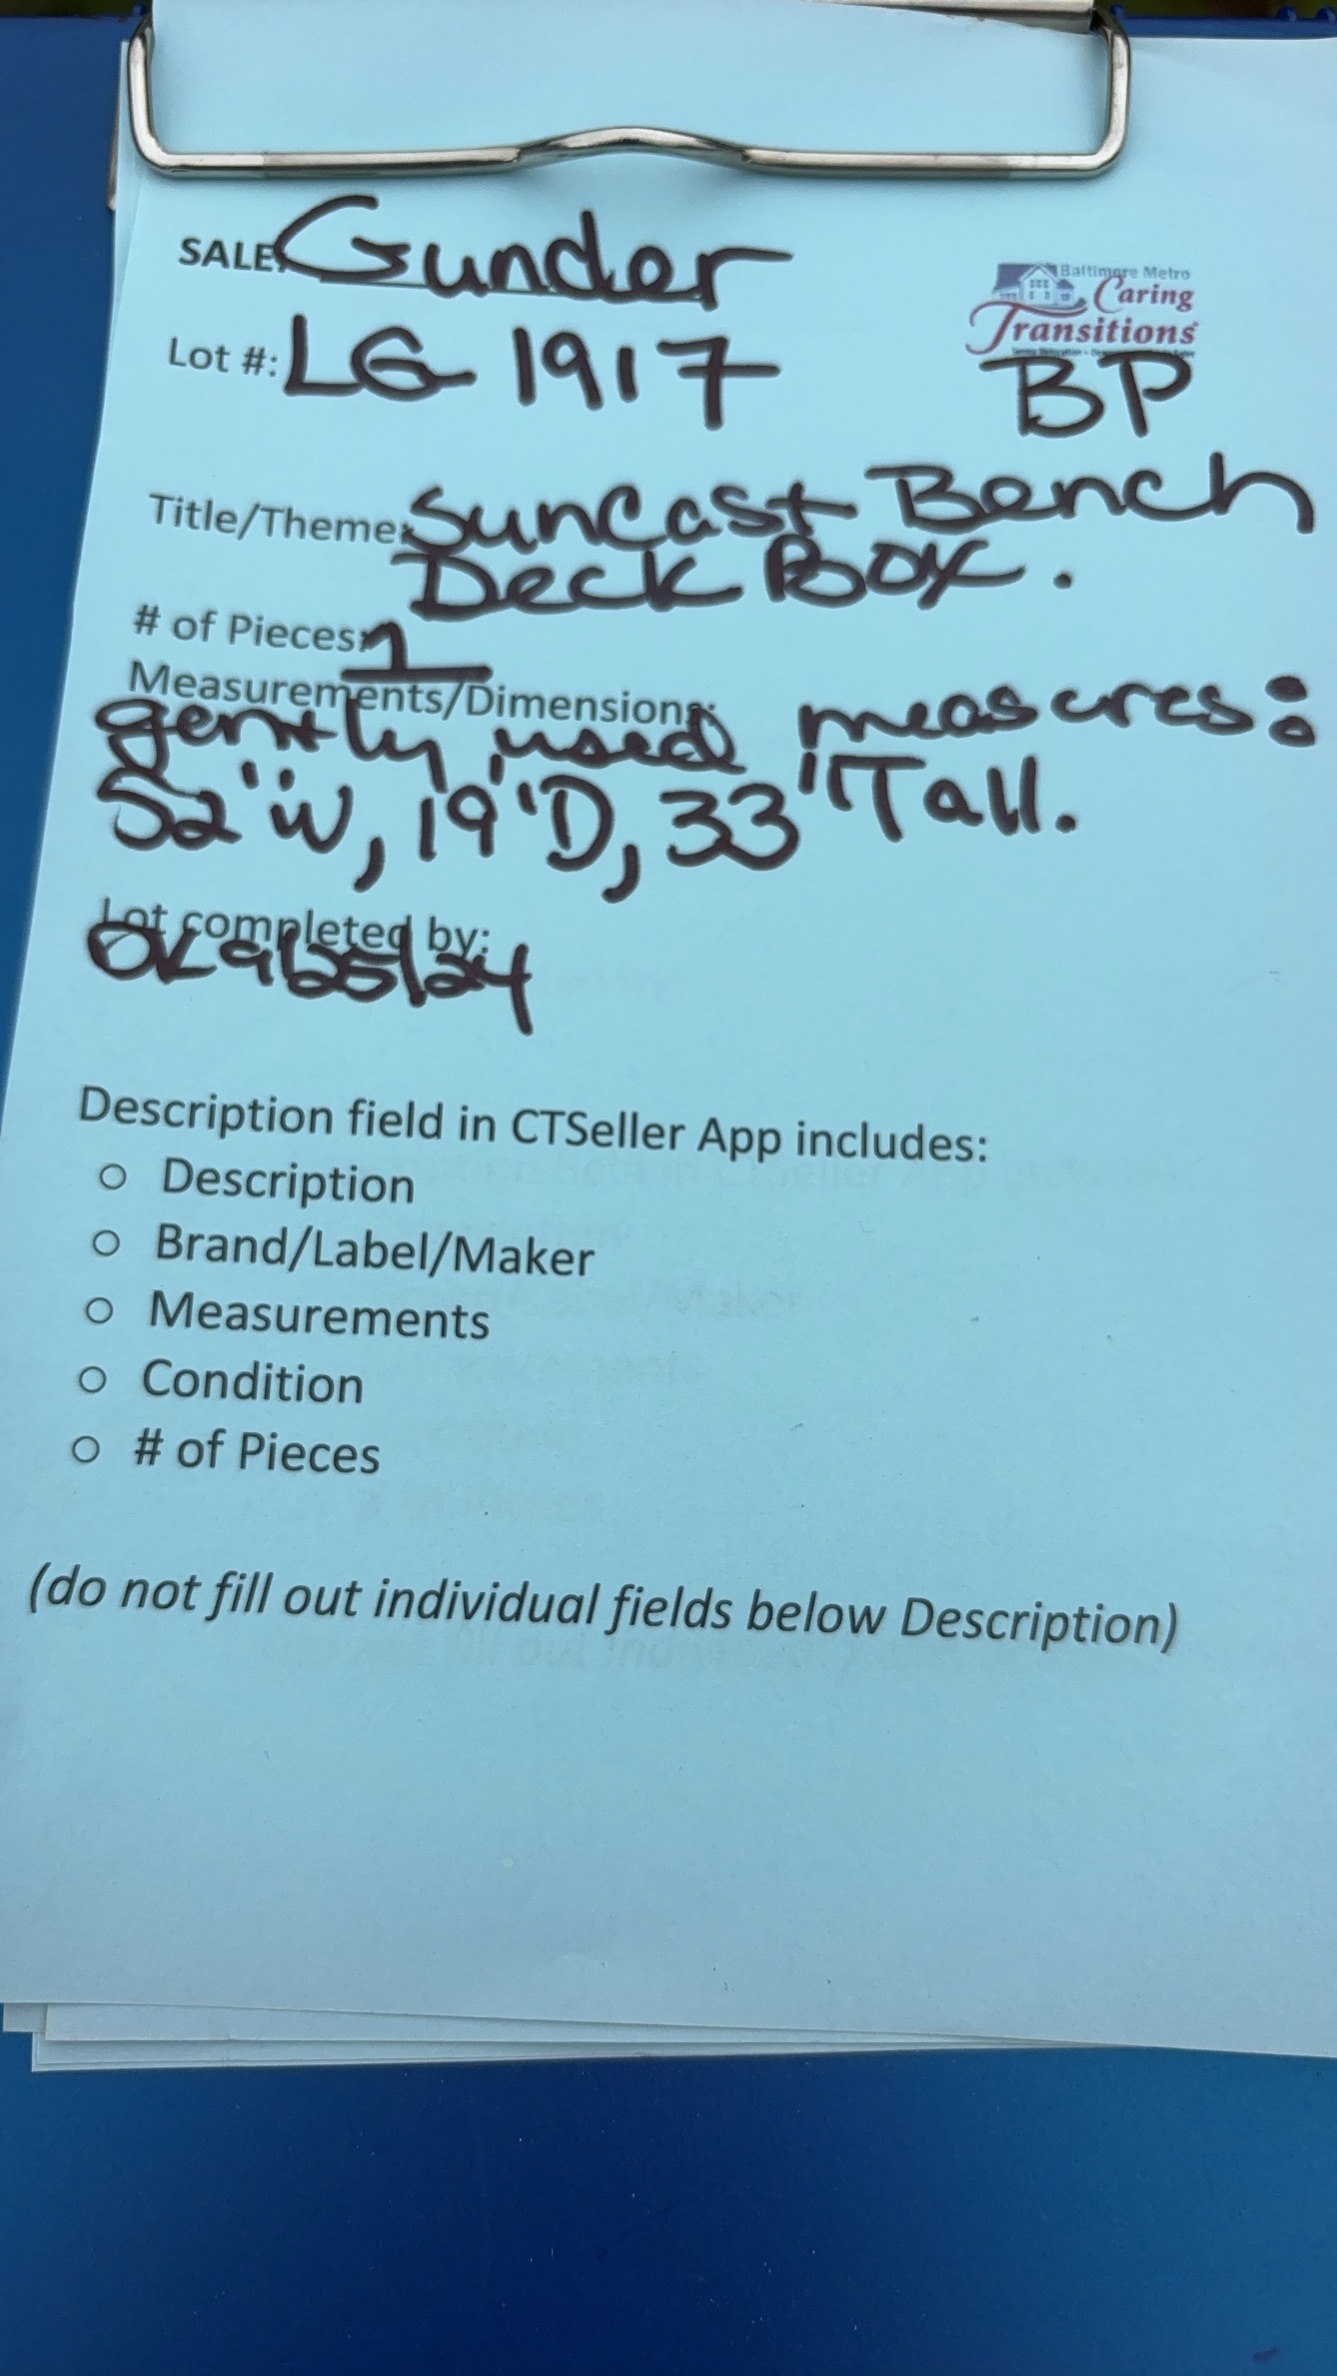 SALE: Gunder
Baltimore Metro
Caring
Transitions
Lot #: LG 1917
BP
Title/Theme: SunCast Bench
Deck Box.
# of Pieces: 1
Measurements/Dimensions:
gently used measures:
52"W, 19"D, 33"Tall.
Lot completed by:
OK 9/25/24
Description field in CTSeller App includes:
o Description
o Brand/Label/Maker
o Measurements
o Condition
o # of Pieces
(do not fill out individual fields below Description)